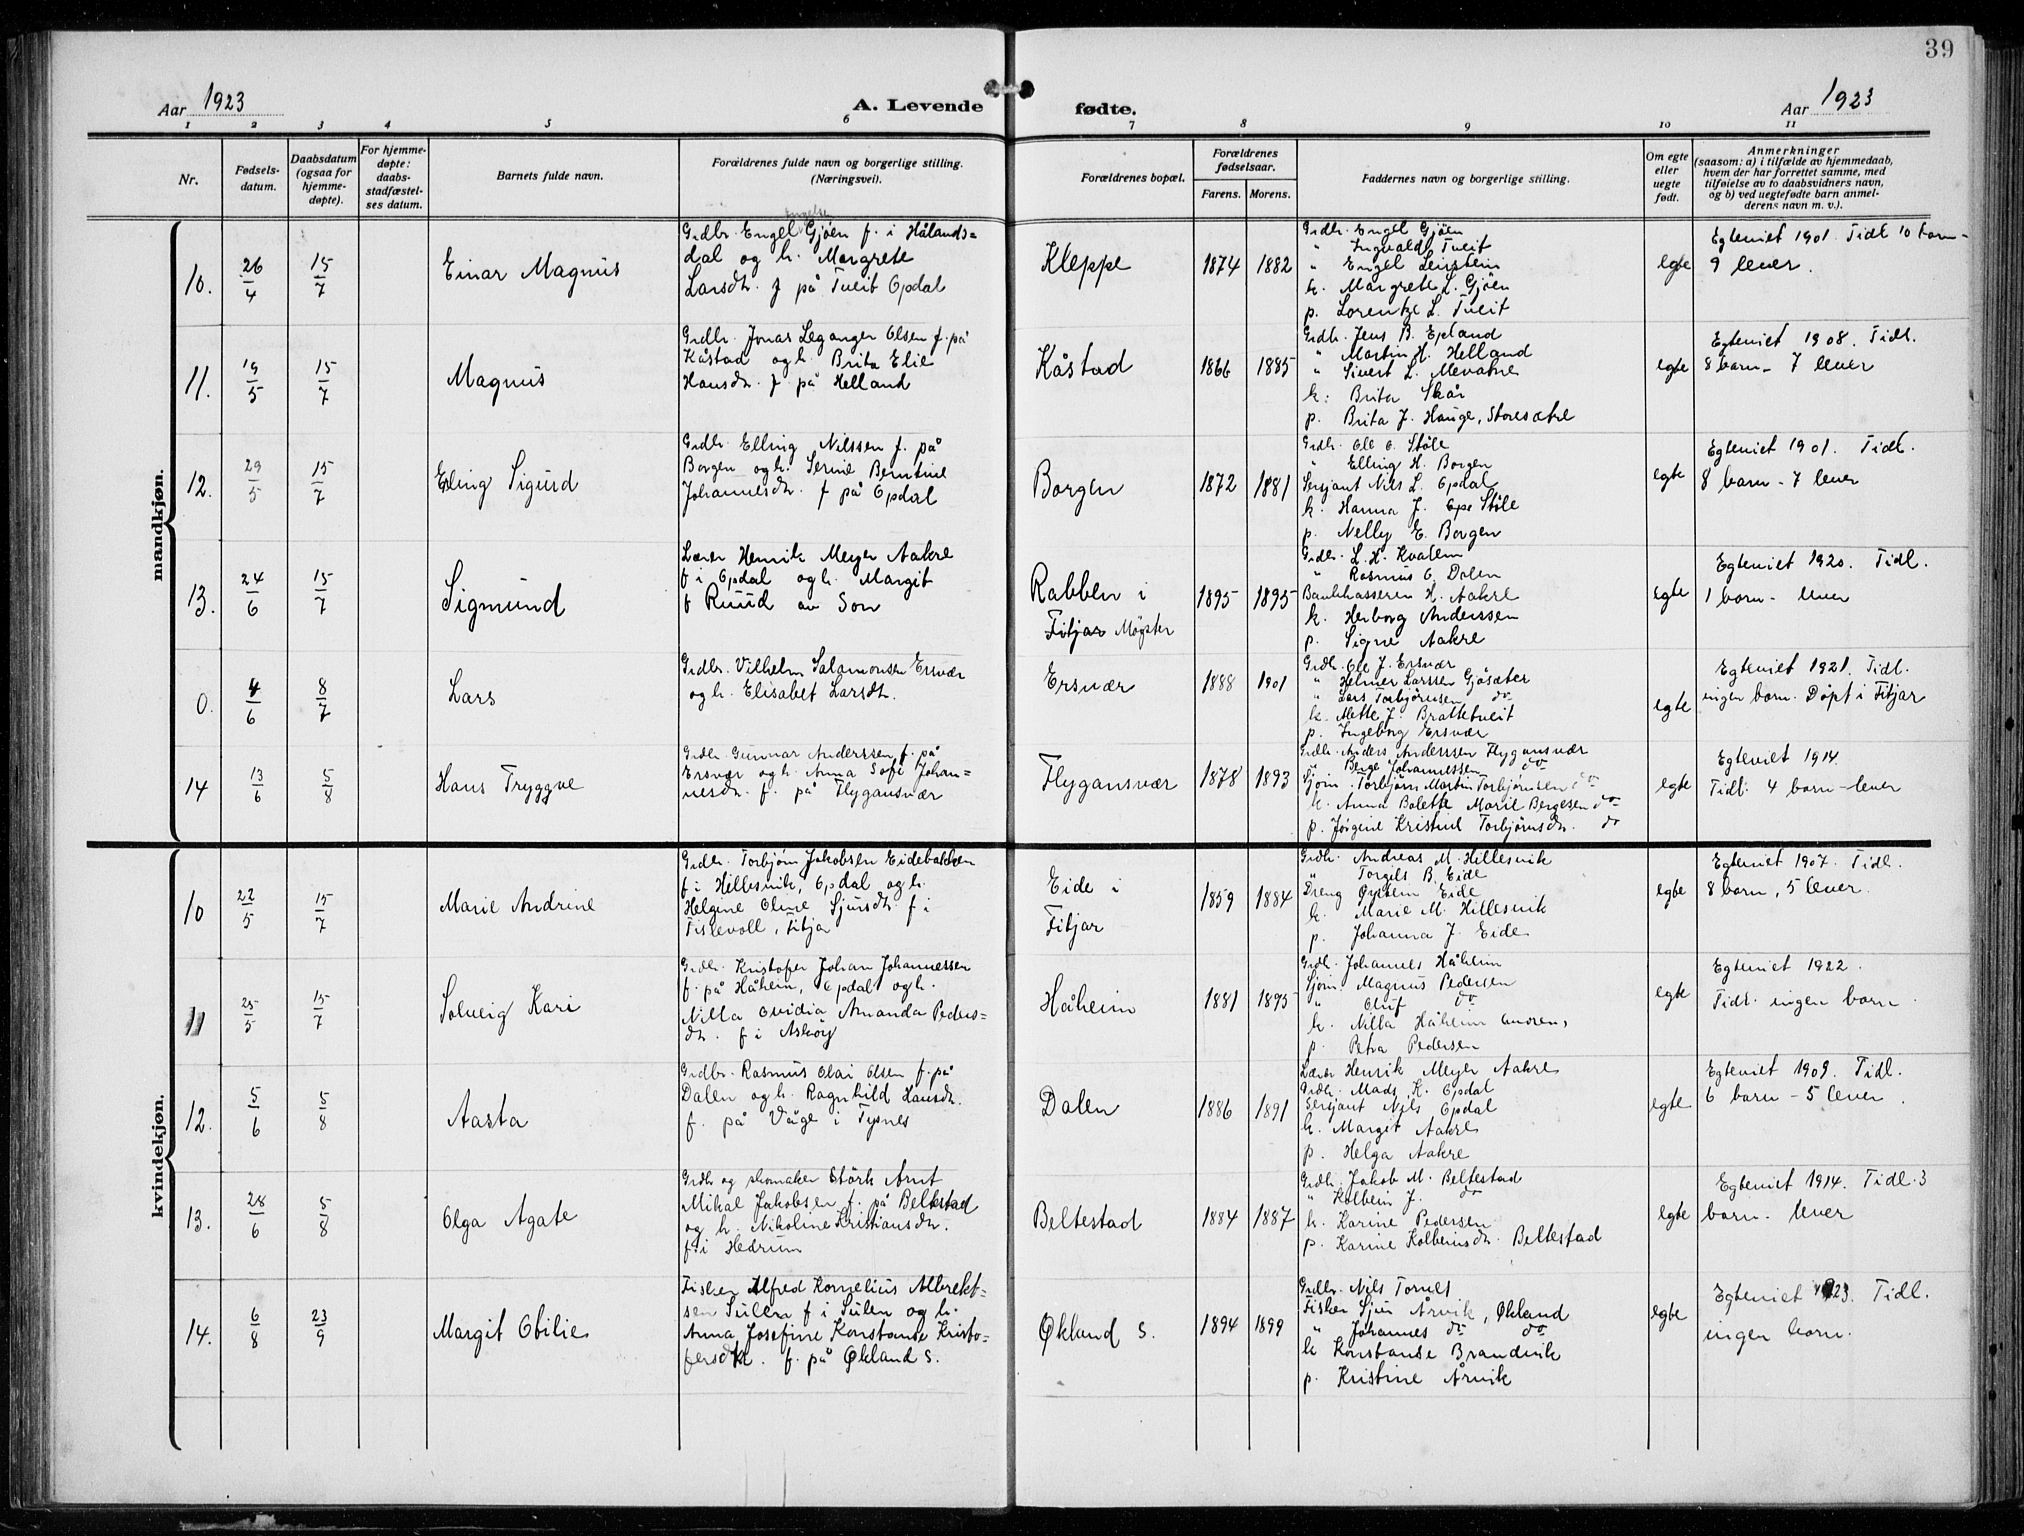 39
Aar 1923
A. Levende fødte.
Aar 1923
1 2 3 4 5 6 7 8 9 10 11
Nr.
Fødsels-
datum.
Daabsdatum
(ogsaa for
hjemme-
døpte).
For hjemme-
døpte:
daabs-
stadfæstel-
ses datum.
Barnets fulde navn.
Forældrenes fulde navn og borgerlige stilling.
(Næringsvei).
Forældrenes bopæl.
Forældrenes
fødselsaar.
Farens. Morens.
Faddernes navn og borgerlige stilling.
Om egte
eller
uegte
født.
Anmerkninger
(saasom: a) i tilfælde av hjemmedaab,
hvem der har forrettet samme, med
tilføielse av to daabsvidners navn,
og b) ved uegtefødte barn anmel-
derens navn m. v.).
mandkjøn.
10.
26/4
15/7
Einar Magnus
Grdbr. Engel Gjøen f. i Hålands=
dal og h. Margrete
Larsdtr. f på Tveit Opdal
Kleppe
1874 1882
Grdbr. Engel Gjøen
" Ingvald Tveit
" Engel
k. Margrete L. Gjøen
p. Lorentze L. Tveit
egte
Egteviet 1901. Tidl 10 barn-
9 lever.
11.
19/5
15/7
Magnus
Grdbr. Jonas Leganger Olsen f. på
Kåstad og h. Brita Elie
Hansdtr. f på Helland
Kåstad
1866 1885
Grdbr. Jens B. Epland
" Martin H. Helland
" Sivert L. Mevatne
k: Brita Skår
p. Brita J. Hauge, Storesætre
egte
Egteviet 1908. Tidl.
8 barn - 7 lever
12.
29/5
15/7
Erling Sigurd
Grdbr. Elling Nilssen f. på
Borgen og h. Serine Berntine
Johannesdtr. f på Opdal
Borgen
1872 1881
Grdbr. Ole O. Støle
" Elling H. Borgen
Sersjant Nils L. Opdal
k. Hanna J. Støle
p. Nelly E. Borgen
egte
Egteviet 1901. Tidl.
8 barn - 7 lever
13.
24/6
15/7
Sigmund
Lærer Henrik Meyer Aakre
f i Opdal og h. Margit
f Ruud av Son
Rabben i
Fitjar Møgster
1895 1895
Grdbr. L. H. Kvalem
" Rasmus O. Dalen
Bankkasserer H. Aakre
k. Herborg Anderssen
p. Signe Aakre
egte
Egteviet 1920. Tidl.
1 barn - lever
0.
4/6
8/7
Lars
Grdbr. Vilhelm Salamonsen Ersvær
og h. Elisabet Larsdtr.
Ersvær
1888 1901
Grdbr. Ole J. Ersvær
" Helmer Larssen Gjøsæter
" Lars Torbjørnsen do
k. Mette J. Brattetveit
p. Ingeborg Ersvær
egte
Egteviet 1921. Tidl.
ingen barn. Døpt i Fitjar
14
13/6
5/8
Hans Tryggve
Grdbr. Gunnar Anderssen f. på
Ersvær og h. Anna Sofie Johan=
nesdtr. f. på Flygansvær
Flygansvær
1878 1893
Grdbr. Anders Anderssen Flygansvær
" Berge Johannessen do
Sjøm. Torbjørn Martin Torbjørnsen do
k. Anna Bolette Marie Bergesen do
p. Jørgine Kristine Torbjørnsdtr. do
egte
Egteviet 1914.
Tidl. 4 barn - lever
kvindekjøn.
10
22/5
15/7
Marie Andrine
Grdbr. Torbjørn Jakobsen Eidebakken
f i Hillesvik, Opdal og h.
Helgine Oline Sjursdtr. f i
Tislevoll, Fitjar
Eide i
Fitjar
1859 1884
Grdbr. Andreas M. Hillesvik
" Torgels B. Eide
Dreng Øystein Eide
k. Marie M. Hillesvik
p. Johanna J. Eide
egte
Egteviet 1907. Tidl.
8 barn, 5 lever.
11
25/5
15/7
Solveig Kari
Grdbr. Kristofer Johan Johannessen
f. på Håheim, Opdal og h.
Nilla Ovidia Amanda Peders=
dtr. f i Askøy
Håheim
1881 1895
Grdbr. Johannes Håheim
Sjøm. Magnus Pedersen
" Oluf do
k. Nilla Håheim
p. Petra Pedersen
egte
Egteviet 1922.
Tidl. ingen barn
12.
5/6
5/8
Aasta
Grdbr. Rasmus Olai Olsen f. på
Dalen og h. Ragnhild Hansdtr.
f. på Våge i Tysnes
Dalen
1886 1891
Lærer Henrik Meyer Aakre
Grdbr. Mads K. Opdal
Sersjant Nils Opdal
k. Margit Aakre
p. Helga Aakre
egte
Egteviet 1909. Tidl.
6 barn - 5 lever.
13.
28/6
5/8
Olga Agate
Grdbr og skomaker Størk Arnt
Mikal Jakobsen f. på Beltestad
og h. Nikoline Kristiansdtr.
f. i Hedrum
Beltestad
1884 1887
Grdbr. Jakob M. Beltestad
" Kolbein J. do
k. Karine Pedersen
p. Karine Kolbeinsdtr. Beltestad
egte
Egteviet 1914. Tidl. 3
barn - lever
14.
6/8
23/9
Margit Obilie
Fisker Alfred Kornelius Albrekt=
sen Sulen f i Sulen og h.
Anna Josefine Konstanse Kristo=
fersdtr. f. på Økland S.
Økland S.
1894 1899
Grdbr. Nils Tornes
Fisker Sjur Årvik, Økland
" Johannes do do
k Konstanse Brandvik
p. Kristine Årvik
egte
Egteviet 1923. Tidl.
ingen barn.